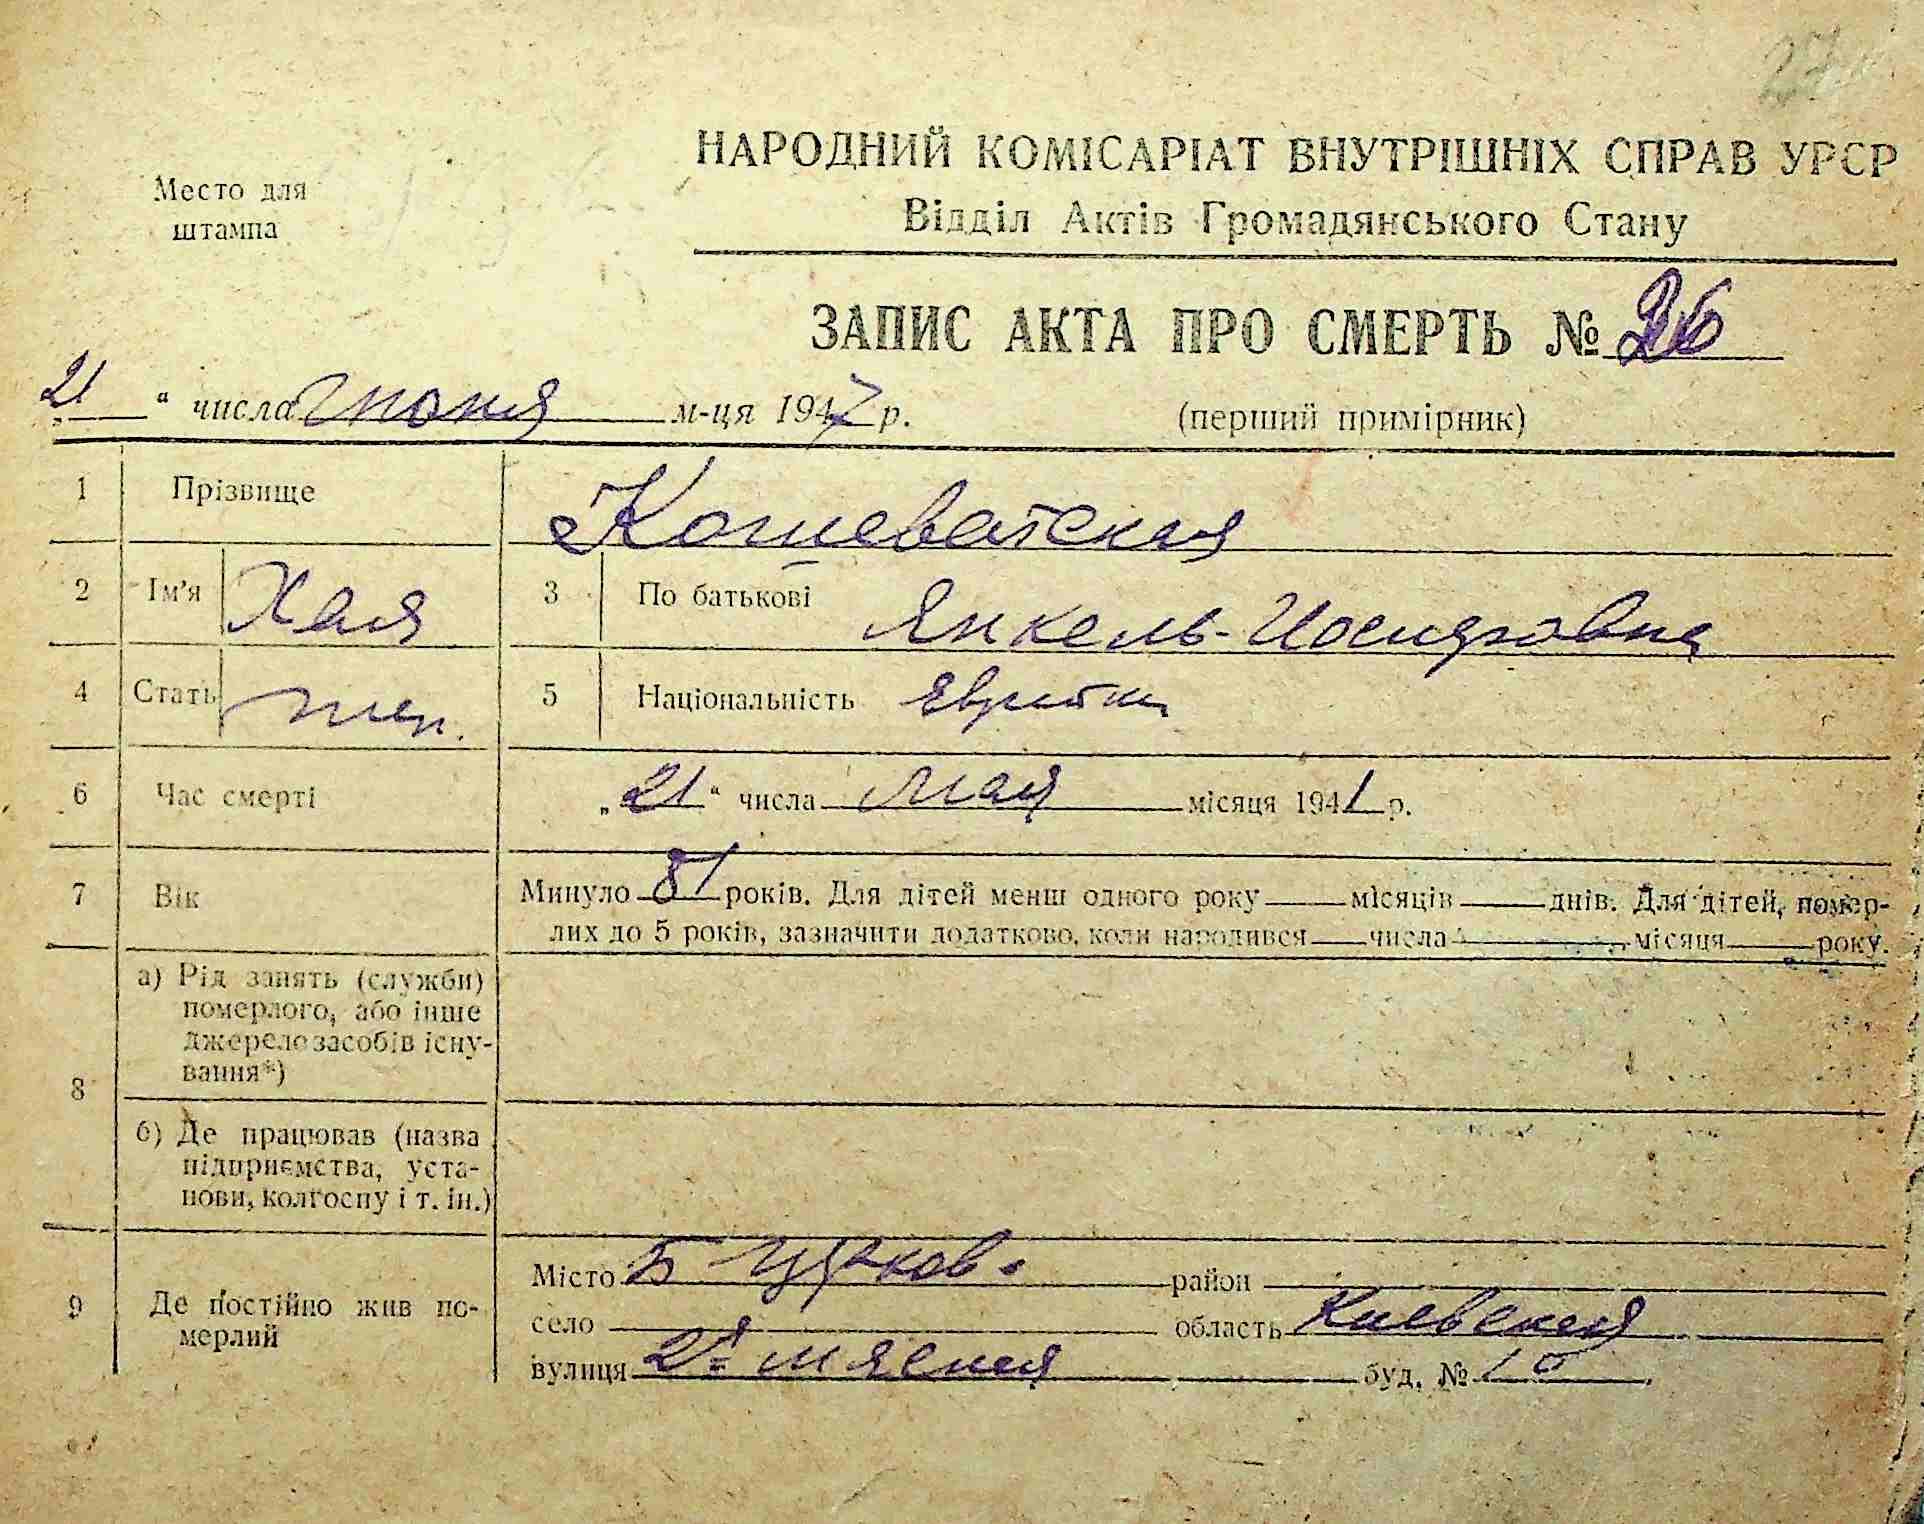 27
Место для
штампа
НАРОДНИЙ КОМІСАРІАТ ВНУТРІШНІХ СПРАВ УРСР
Відділ Актів Громадянського Стану
ЗАПИС АКТА ПРО СМЕРТЬ №
„21“ числа июня м-ця 1947 р. (перший примірник)
1 Прізвище Кошеватская
2 Ім'я Хая 3 По батькові Янкель-Иосифовна
4 Стать жен. 5 Національність Еврейка
6 Час смерті „21“ числа мая місяця 1941 р.
7 Вік Минуло 81 років. Для дітей менш одного року місяців днів. Для дітей, помер-
лих до 5 років, зазначити додатково, коли народився числа місяця року.
8 а) Рід занять (служби)
померлого, або інше
джерело засобів існу-
вання*)
б) Де працював (назва
підприємства, уста-
нови, колгоспу і т. ін.)
9 Де постійно жив по-
мерлий
Місто Б Церковь район
село область Киевская
вулиця 2я Мясная буд. № 10